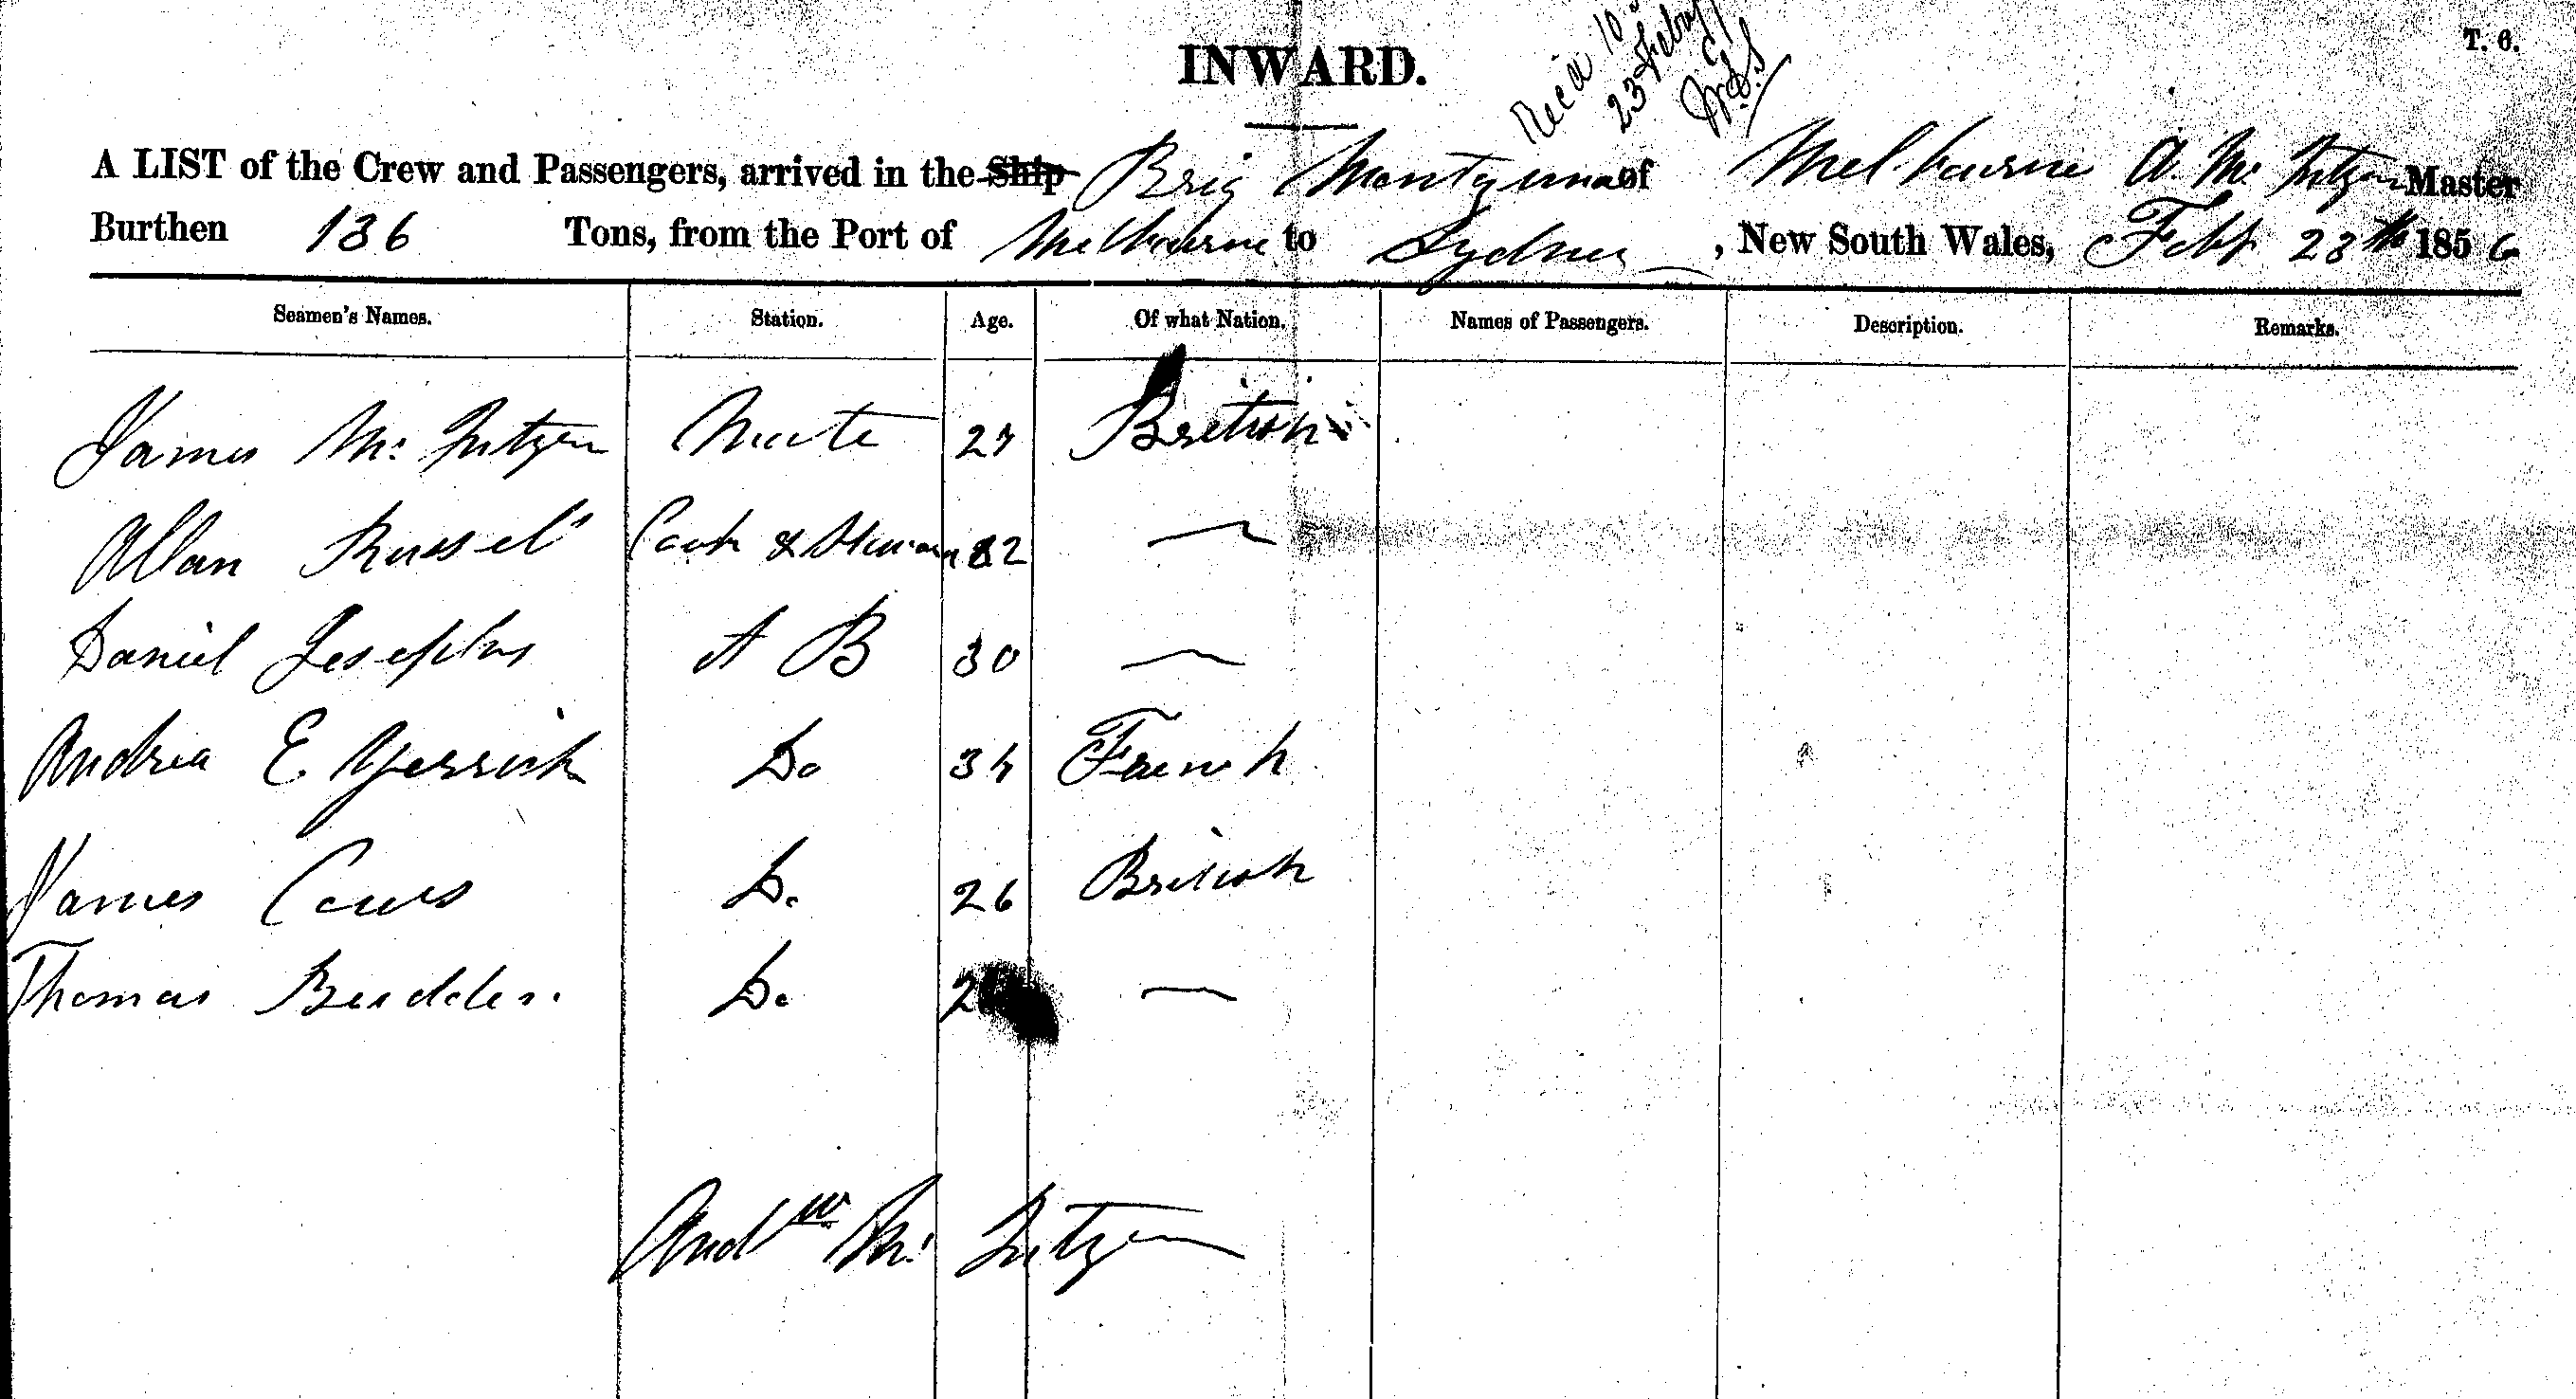 INWARD.
T. 6.
Recd 10
23 Feby
A LIST of the Crew and Passengers, arrived in the Ship Brig of Melbourne A. Mc Master
Burthen 136 Tons, from the Port of Melbourne to Sydney, New South Wales, 23th 1856
Seamen's Names. Station. Age. Of what Nation. Names of Passengers. Description. Remarks.
James Mc Mate 27 British
Allan Russel Cook & 32 —
Daniel Josephus A B 30 —
Andrea E Do 34 French
James Do 26 British
Thomas Do 2 —
Andw Mc